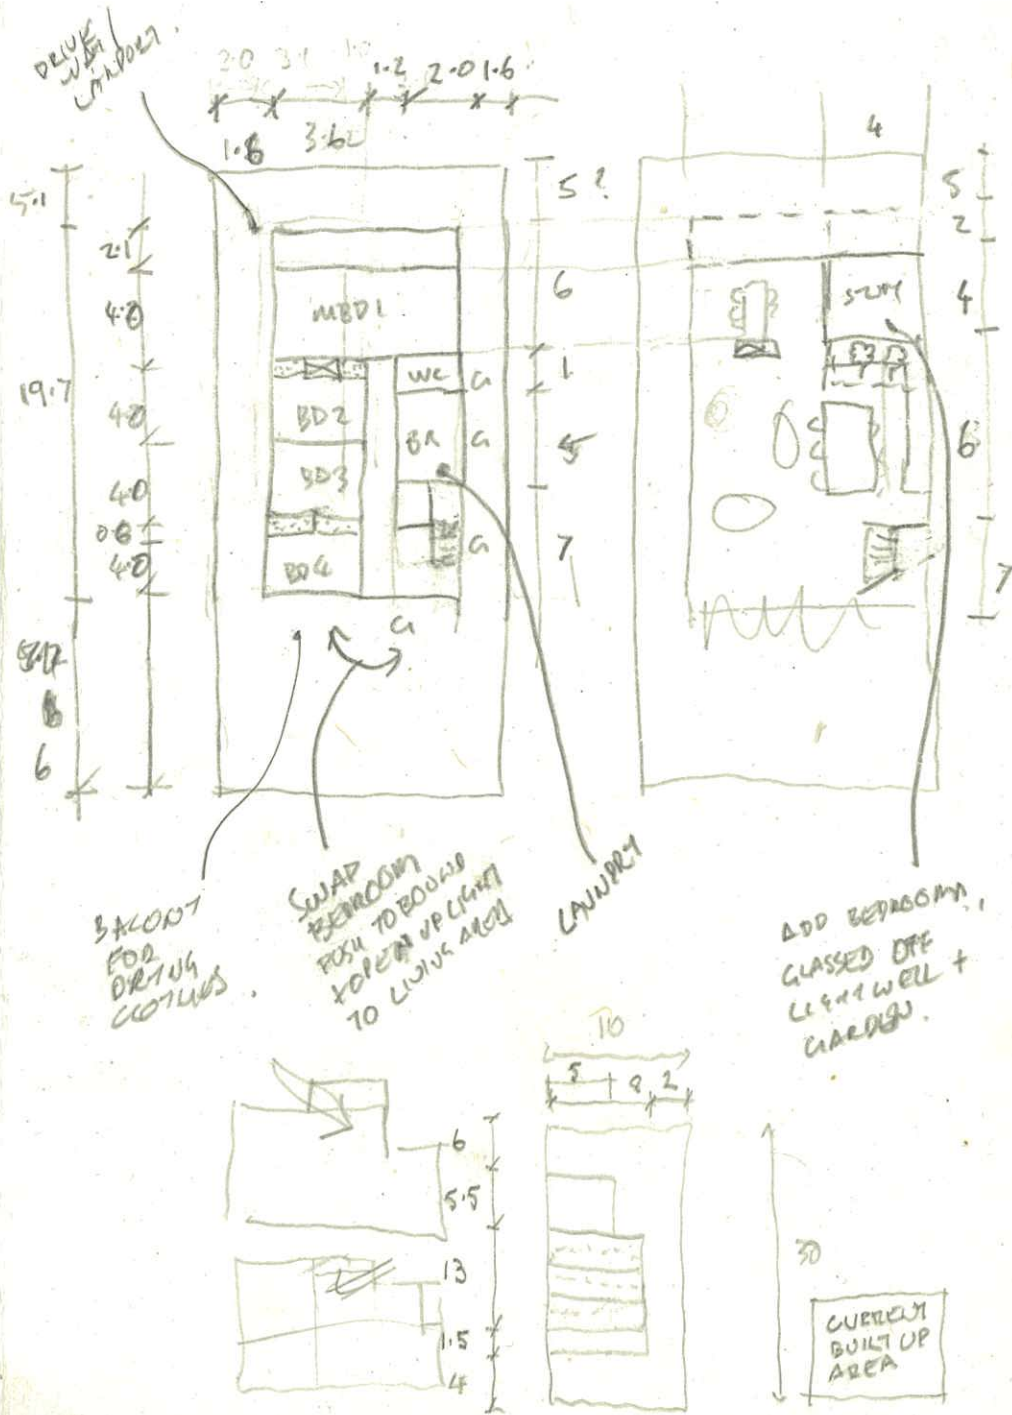 DRIVE
WAY/
CARPORT.
2.0 3.1
1.2 2.0 1.6
1.8 3.6
5.1
2.1
4.0
19.7
4.0
4.0
0.6
4.0
6
MBD1
WC G
BD2
BR G
BD3
G
BD4
G
5?
6
1
5
7
4
5
2
4
6
7
BALCONY
FOR
DRYING
CLOTHES.
SWAP
BEDROOM
PUSH TO BOUND
+ OPEN UP LIGHT
TO LIVING AREA
LAUNDRY
ADD BEDROOM,
GLASSED OFF
LIGHTWELL +
GARDEN.
6
5.5
13
1.5
4
10
5 8 2
30
CURRENT
BUILT UP
AREA